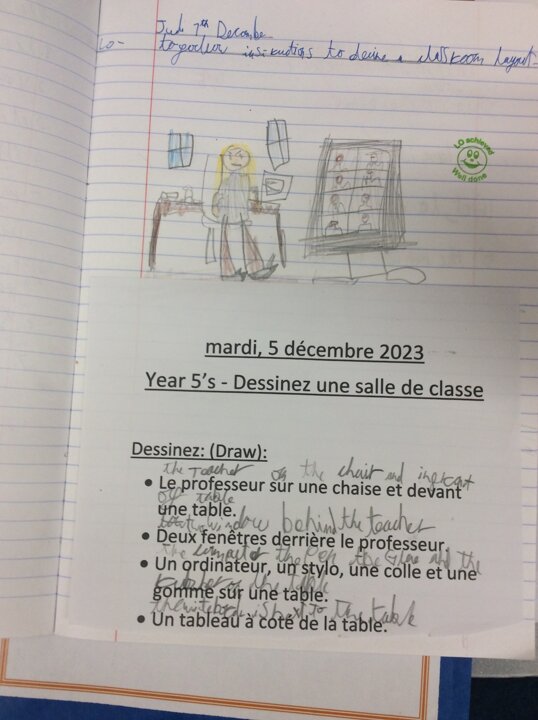 7th Decembe
LO-
to instructions to a classroom layout.
LO achieved
Well done
mardi, 5 décembre 2023
Year 5's - Dessinez une salle de classe
Dessinez: (Draw):
the Teacher on the chair and
• Le professeur sur une chaise et devant
of table
une table.
window behind the teacher
• Deux fenêtres derrière le professeur.
the the Pen the and the
• Un ordinateur, un stylo, une colle et une
the table
gomme sur une table.
to The table
• Un tableau à coté de la table.